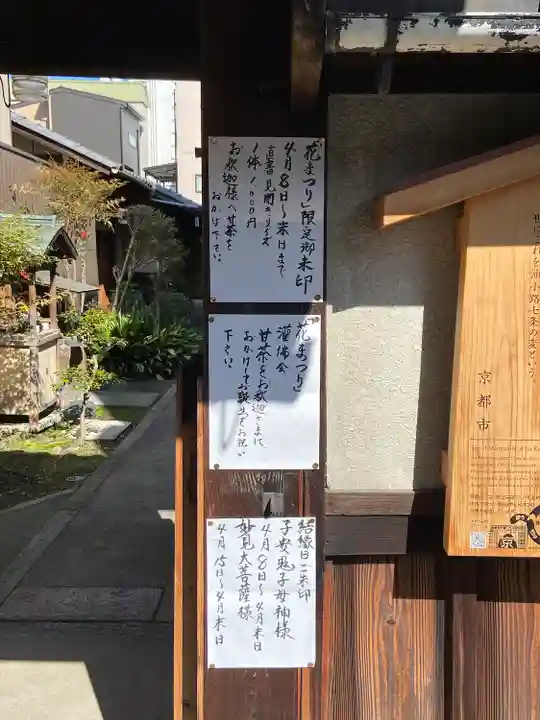 「花まつり」限定御朱印
4月8日〜末日まで
直書見開きサイズ
1体1000円
お釈迦様へ甘茶を
おかけ下さい。
「花まつり」
灌佛会
甘茶をお釈迦さまに
おかけしてお誕生をお祝い
下さい。
結縁日ご朱印
子安鬼子母神様
4月8日〜4月末日
妙見大菩薩様
4月15日〜4月末日
油小路七条の変という。
京都市